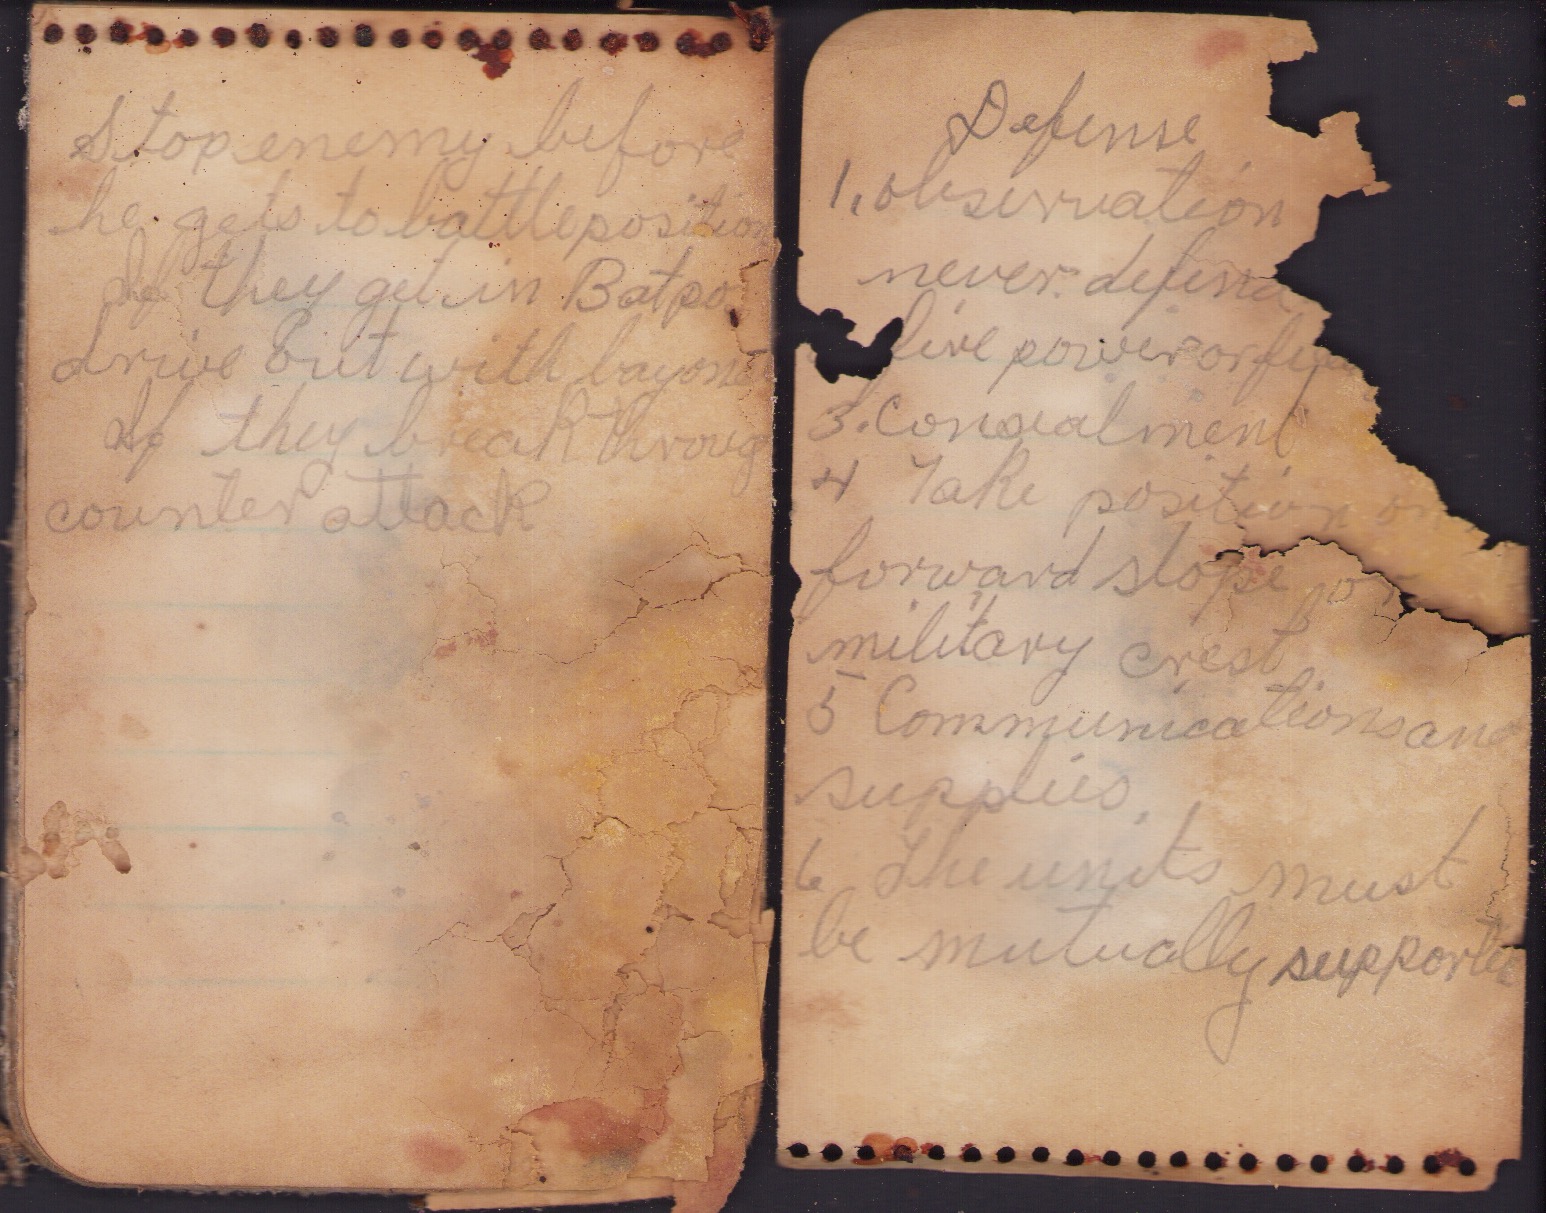 Stop enemy before
he gets to battle position
If they get in Bat po
drive out with bayone
If they break throug
counter attack
Defense
1. observation
never defend
fire power or
3. Concealment
4 Take position on
forward slope or
military crest
5 Communications and
supplies.
6 The units must
be mutually